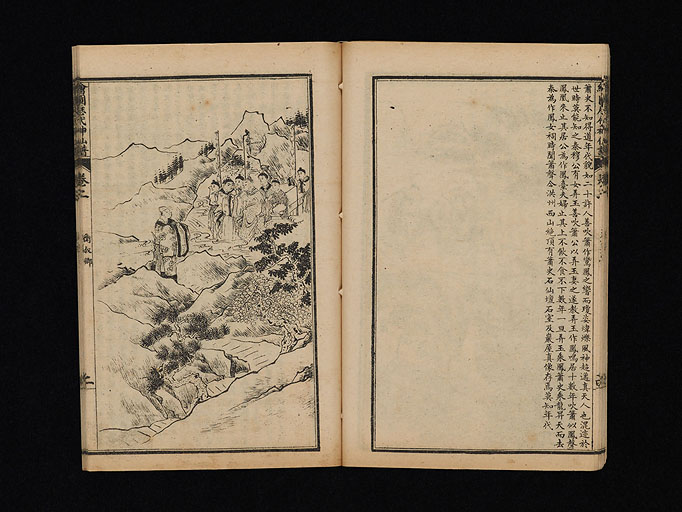 蕭史不知得道年代貌如二十許人善吹簫作鸞鳳之響而瓊姿煒爍風神超邁真天人也混迹於
世時莫能知之秦穆公有女弄玉善吹簫公以弄玉妻之遂教弄玉作鳳鳴居十數年吹簫似鳳聲
鳳凰來止其居公為作鳳臺夫婦止其上不飲不食不下數年一旦弄玉乘鳳蕭史乘龍昇天而去
秦為作鳳女祠時聞簫聲今洪州西山絕頂有蕭史石仙壇石室及巖屋真像存焉莫知年代
衛叔卿